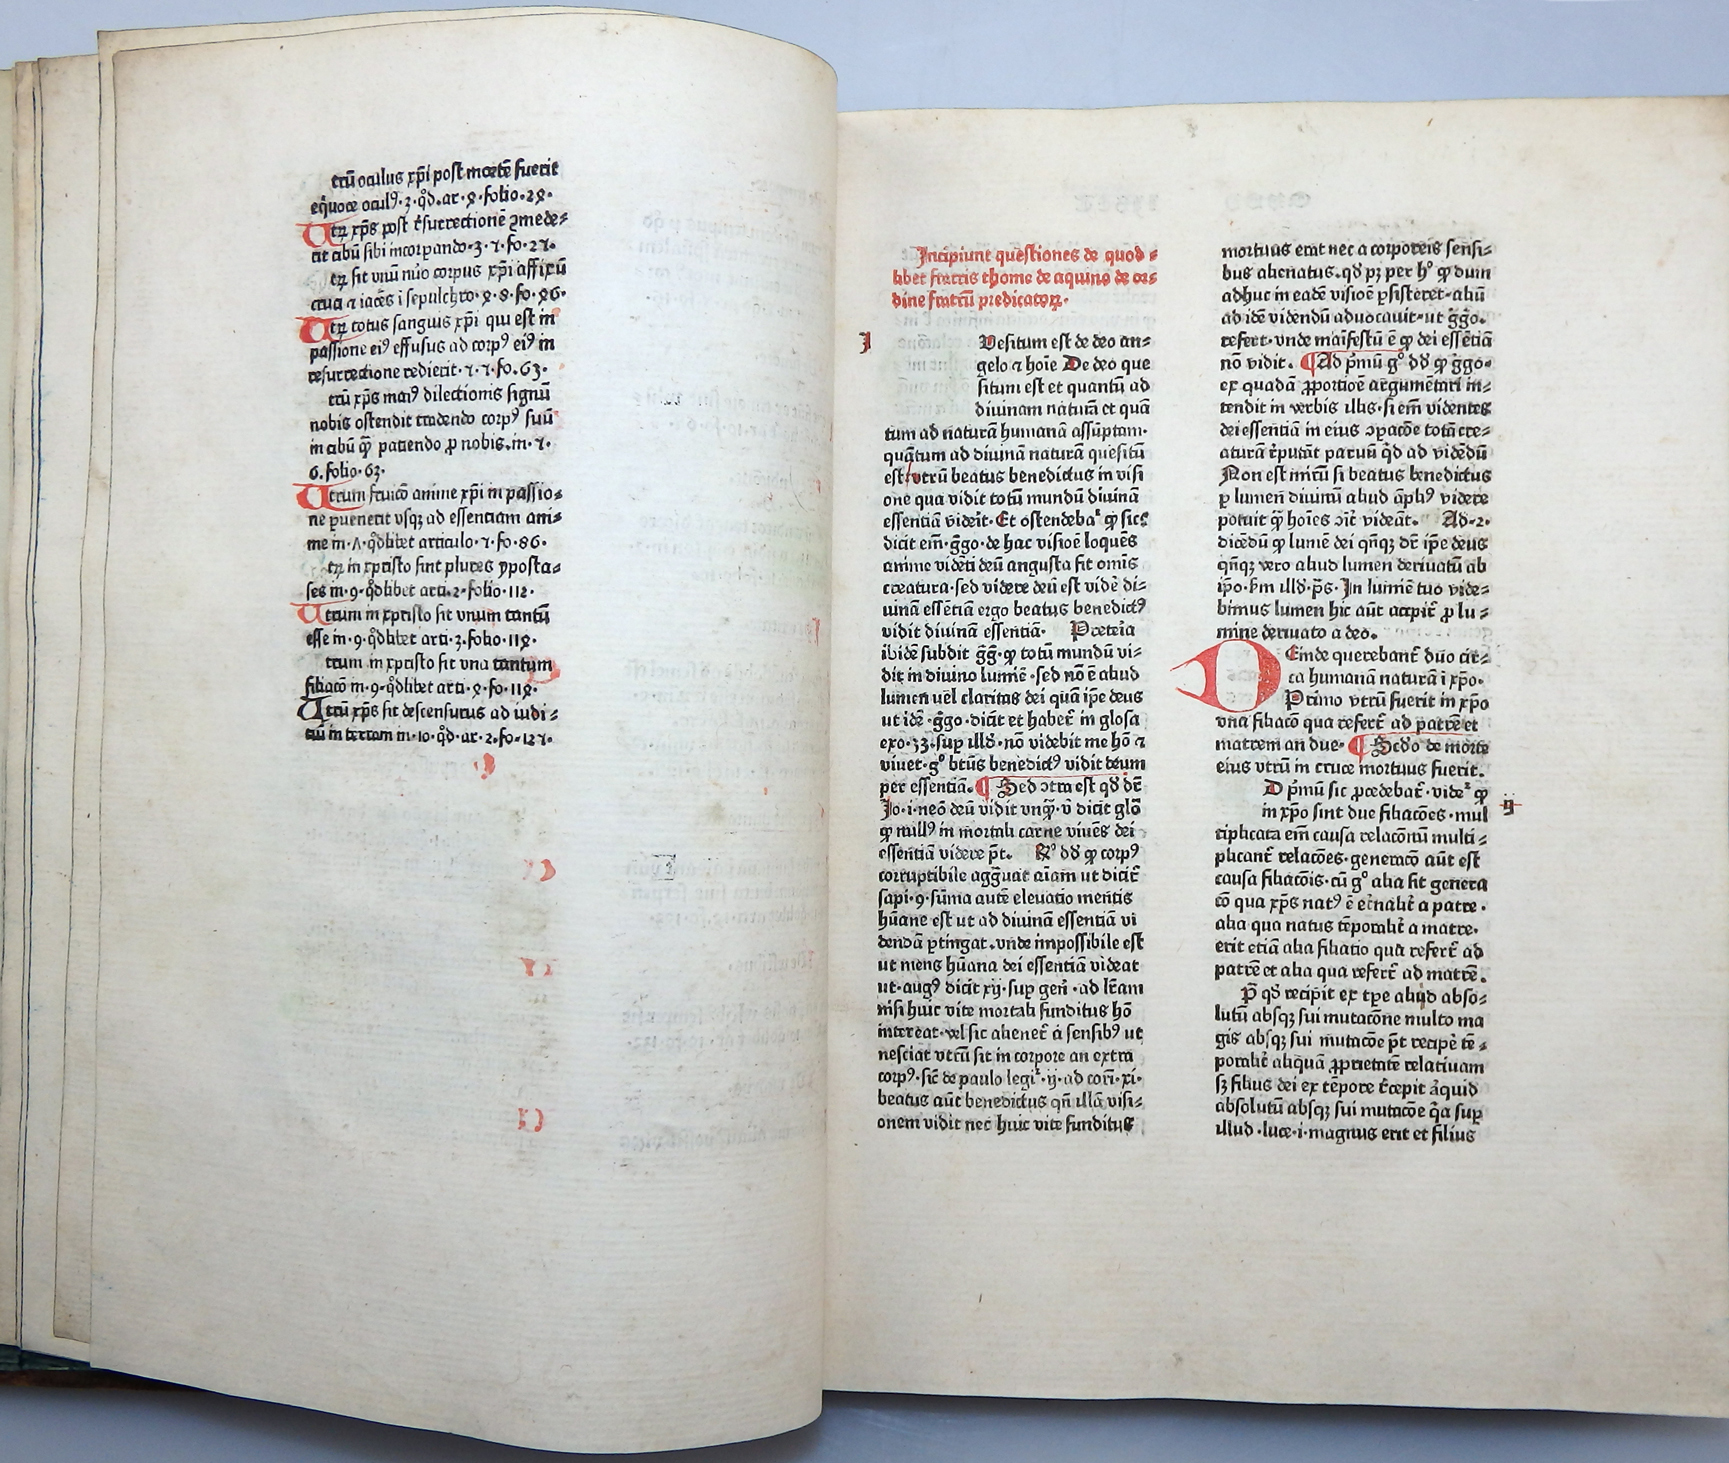 trū oculus xp̄i post mortē fuerit
eq̄uoce ocul⁹·3·q̊d·ar·8·folio·28·
Utꝝ xp̄s post r̄surrectionē ꝯmede⸗
rit cibū sibi incorpando·3·7·fo·27·
tꝝ sit vnū nūo corpus xp̄i affixū
cruci ⁊ iacēs i sepulchro·8·8·fo·86·
Utꝝ totus sanguis xp̄i qui est in
passione ei⁹ effusus ad corp⁹ ei⁹ in
resurrectione redierit·7·7·fo·63·
trū xp̄s mai⁹ dilectionis signū
nobis ostendit tradendo corp⁹ suū
in cibū q̄ꝫ patiendo ꝓ nobis·in·7·
6·folio·63·
Utrum fruicō anime xp̄i in passio⸗
ne ꝑuenerit vsqꝫ ad essentiam ani⸗
me in·Λ·q̊dlibet articulo·7·fo·86·
tꝝ in xp̄isto sint plures yposta⸗
ses in·9·q̊dlibet arti·2·folio·112·
Utrum in xp̄isto sit vnum tantū
esse in·9·q̊dlibet arti·3·folio·118·
trum in xp̄isto sit vna tantum
filiacō in·9·q̊dlibet arti·8·fo·118·
Utrū xp̄s sit descensurus ad iudi⸗
ciū in terram in·10·q̊d·ar·2·fo·127·
Incipiunt questiones de quod⸗
libet fratris thome de aquino de or⸗
dine fratrū predicatoꝝ·
I
Uesitum est de deo an⸗
gelo ⁊ hoīe De deo que
situm est et quantū ad
diuinam naturā et quā
tum ad naturā humanā assūptam·
quātum ad diuinā naturā quesitū
est vtrū beatus benedictus in visi
one qua vidit totū mundū diuinā
essentiā viderit·Et ostendebaᵗ ꝙ sic⸗
dicit em̄·ḡgo·de hac visioē loquēs
anime vidēti deū angusta fit omīs
creatura·sed videre deū est vidē di⸗
uinā essētiā ergo beatus benedict⁹
vidit diuinā essentiā· Preteīa
ibidē subdit ḡg̅·ꝙ totū mundū vi⸗
dit in diuino lumīe·sed nō ē aliud
lumen uel claritas dei quā ipē deus
ut idē·ḡgo·dicit et habet̄ in glosa
exo·33·sup illd̄·nō videbit me hō ⁊
viuet·gᵒ btūs benedict⁹ vidit deum
per essentiā·¶ Sed ɔtra est qd̄ dr̄
Jo·i·neō deū vidit vnq̄ꝫ·v̄ dicit glō
ꝙ null⁹ in mortali carne viuēs dei
essentiā videre pt̄· Rᵒ dd̄ ꝙ corp⁹
corruptibile agḡuat aīam ut dicit̄
sapi·9·sūma autē eleuatio mentis
hūane est ut ad diuinā essentiā vi
dendā ꝑtingat·vnde impossibile est
ut mens hūana dei essentiā videat
ut·aug⁹ dicit xij·sup gen̄·ad lr̄am
nisi huic vite mortali funditus hō
intereat·vel sic alienet̄ a sensib⁹ ut
nesciat vtrū sit in corpore an extra
corp⁹·sic̄ de paulo legiᵗ·ij·ad cori·xi·
beatus aūt benedictus qn̄ illā visi⸗
onem vidit nec huic vite funditus
mortuus erat nec a corporeis sensi⸗
bus alienatus·qd̄ pꝫ per hᵒ ꝙ dum
adhuc in eadē visioē ꝑsisteret·aliū
ad idē videndū aduocauit·ut ḡgo·
refert·vnde maīfestū ē ꝙ dei essētiā
nō vidit·¶Ad p̄mū gᵒ dd̄ ꝙ ḡgo·
ex quadā ꝓportioē argumētari in⸗
tendit in verbis illis·si em̄ videntes
dei essentiā in eius ɔꝑacōe totā cre⸗
aturā r̄putāt paruū q̊d ad vidēdū
Non est mīrū si beatus benedictus
ꝑ lumen diuinū aliud āpli⁹ videre
potuit q̄ꝫ hoīes ɔīt̄ videāt· Ad·2·
dicēdū ꝙ lumē dei qn̄qꝫ dr̄ ipē deus
qn̄qꝫ vero aliud lumen deriuatū ab
ip̄o·ẜm illd̄·p̄s·In lumīe tuo vide⸗
bimus lumen hic aūt accipit̄ ꝓ lu⸗
mine deriuato a deo·
DEinde querebant̄ duo cir⸗
ca humanā naturā i xp̄o·
Primo vtrū fuerit in xp̄o
vna filiacō qua refert̄ ad patrē et
matrem an due·¶Scd̄o de morte
eius vtrū in cruce mortuus fuerit·
D p̄mū sic ꝓcedebat̄·videᵗ ꝙ
ij
in xp̄o sint due filiacōes·mul
tiplicata em̄ causa relacōnū multi⸗
plicant̄ relacōes·generacō aūt est
causa filiacōis·cū gᵒ alia sit genera
cō qua xp̄s nat⁹ ē et̄nalit̄ a patre·
alia qua natus tēporalit̄ a matre·
erit etiā alia filiatio qua refert̄ ad
patrē et alia qua refert̄ ad matrē·
P̄ qd̄ recipit ex tꝑe aliq̄d abso⸗
lutū absqꝫ sui mutacōne multo ma
gis absqꝫ sui mutacōe pt̄ recipē tē⸗
poralit̄ aliquā ꝓprietatē relatiuam
sꝫ filius dei ex tēpore r̄cepit aq̄uid
absolutū absqꝫ sui mutacōe q̄a sup
illud·luce·i·magnus erit et filius